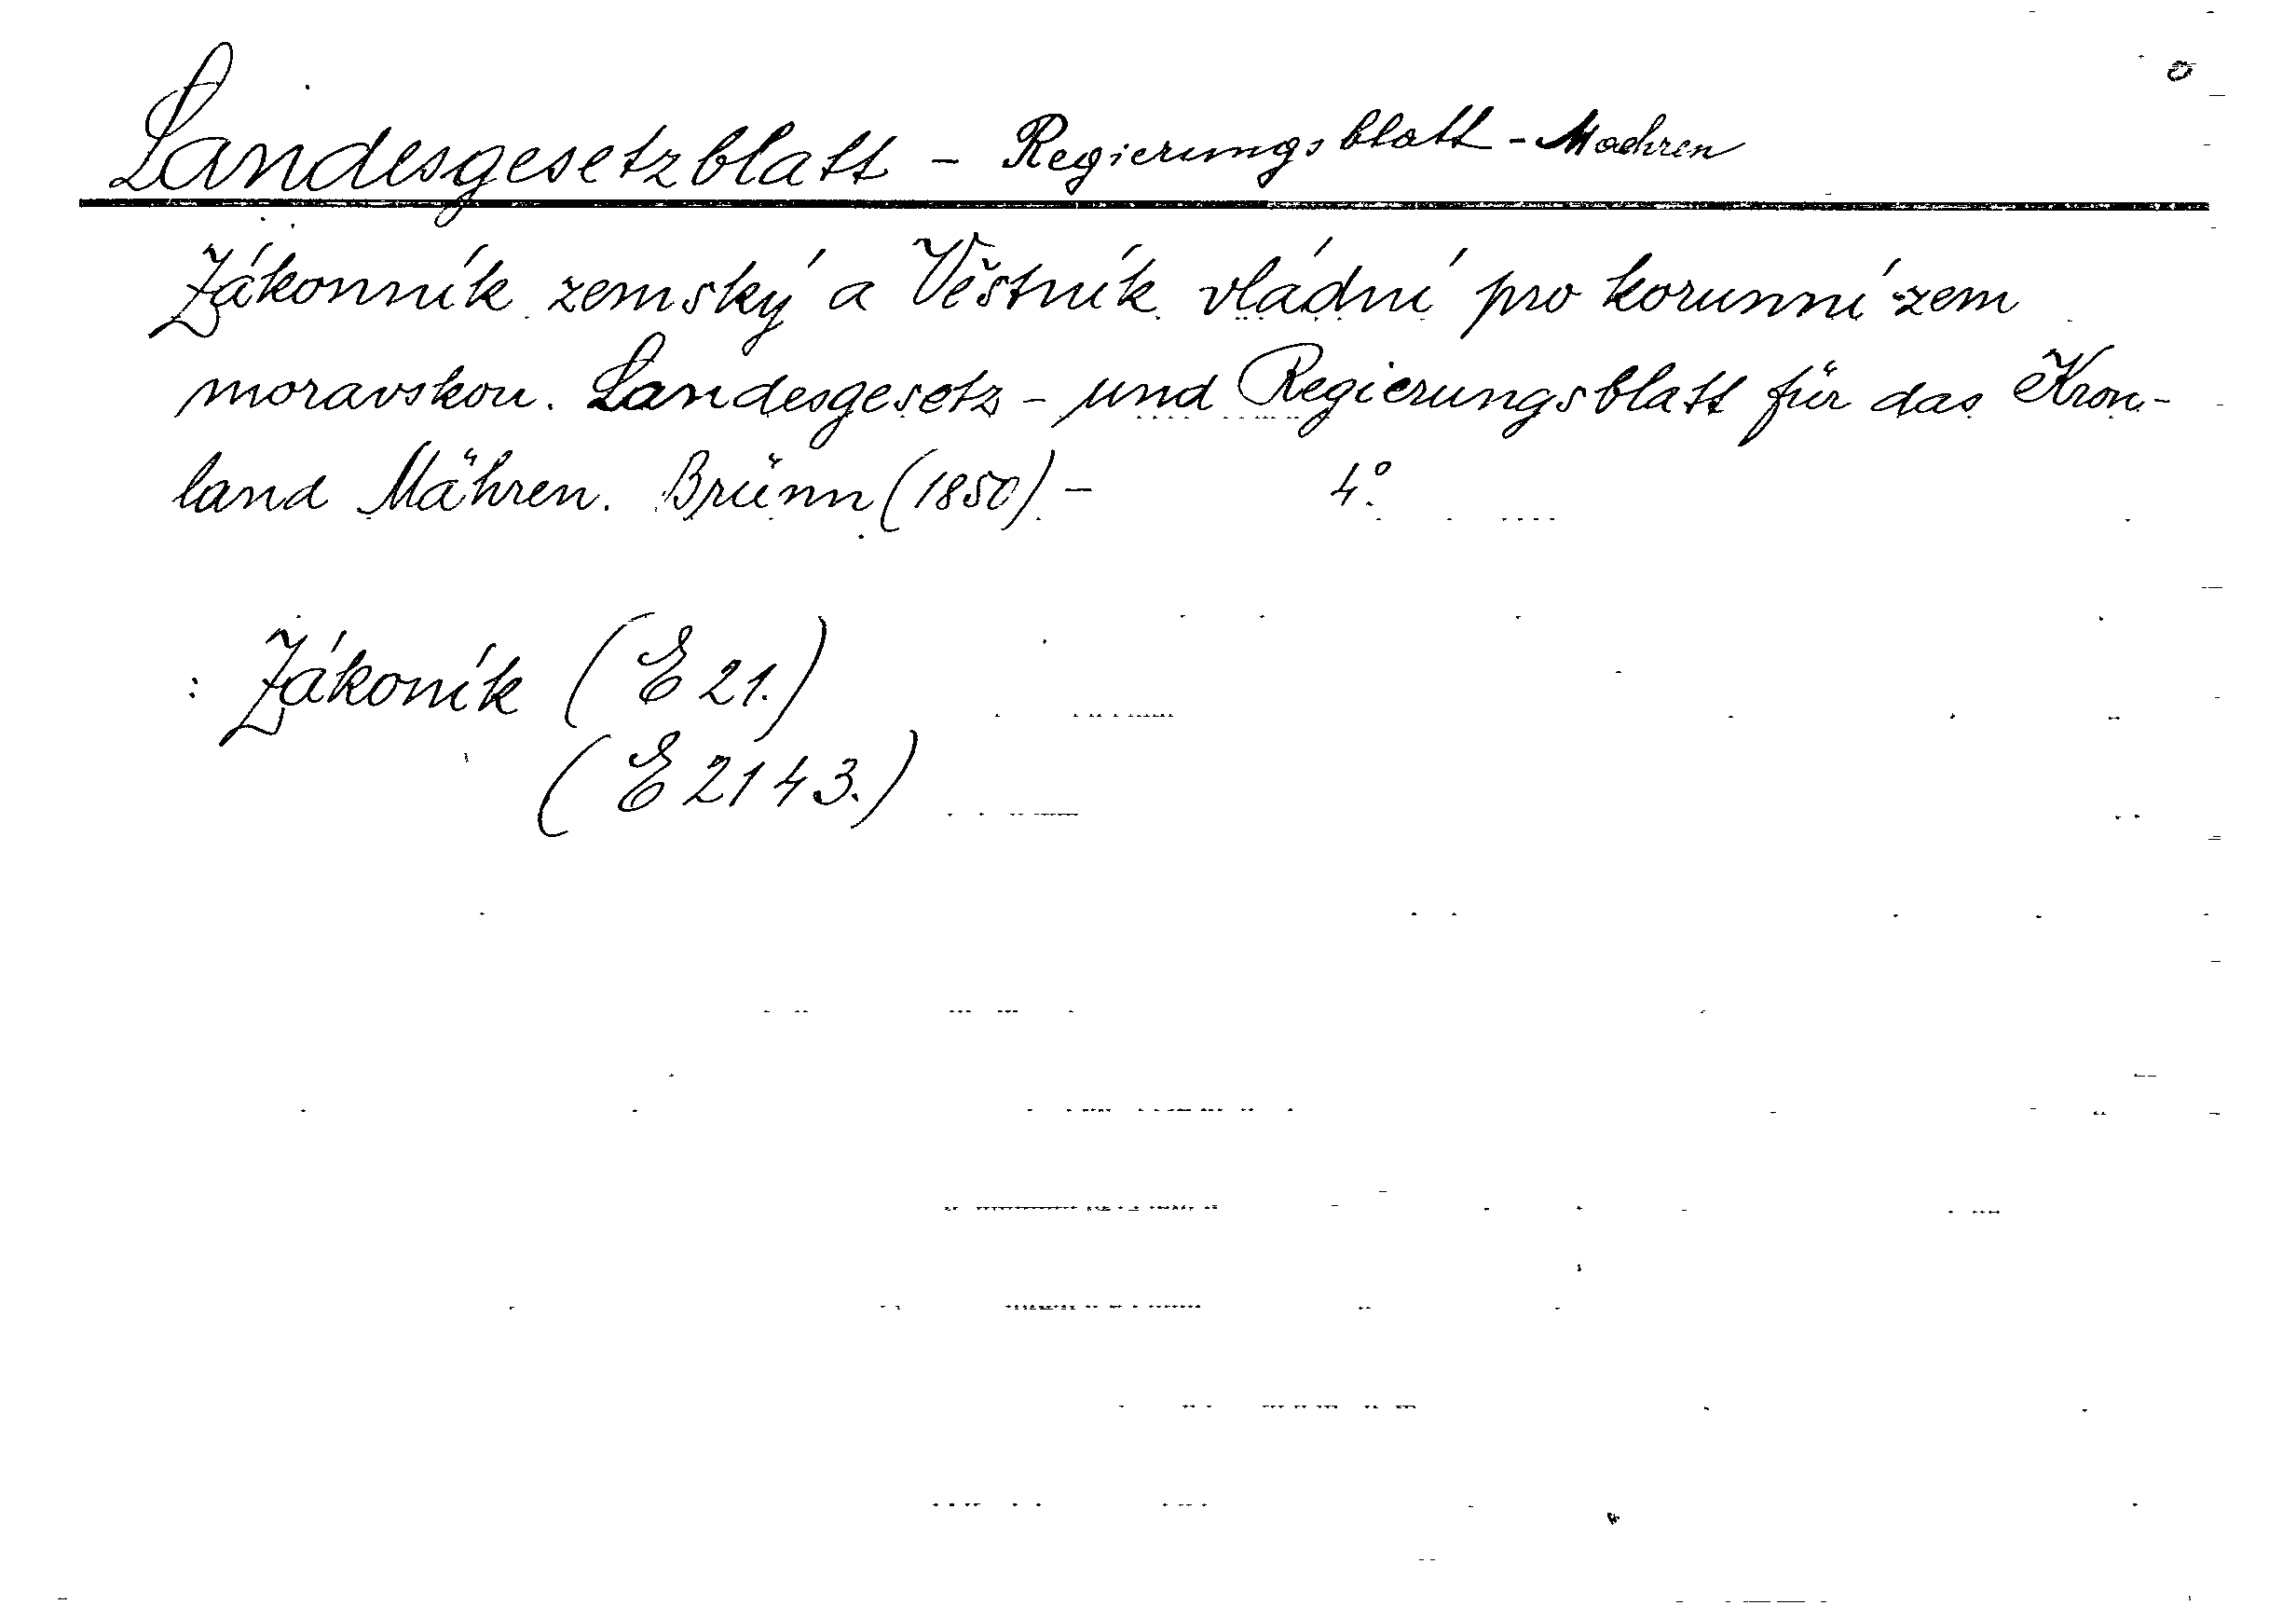 Landesgesetzblatt - Regierungsblatt - Maehren
Zákonník zemský a Věstník vládní pro korunní zem
moravskou. Landesgesetz- und Regierungsblatt für das Kron-
land Mähren. Brünn (1850) - 4°.
: Zákoník (E 21.)
(E 2143.)